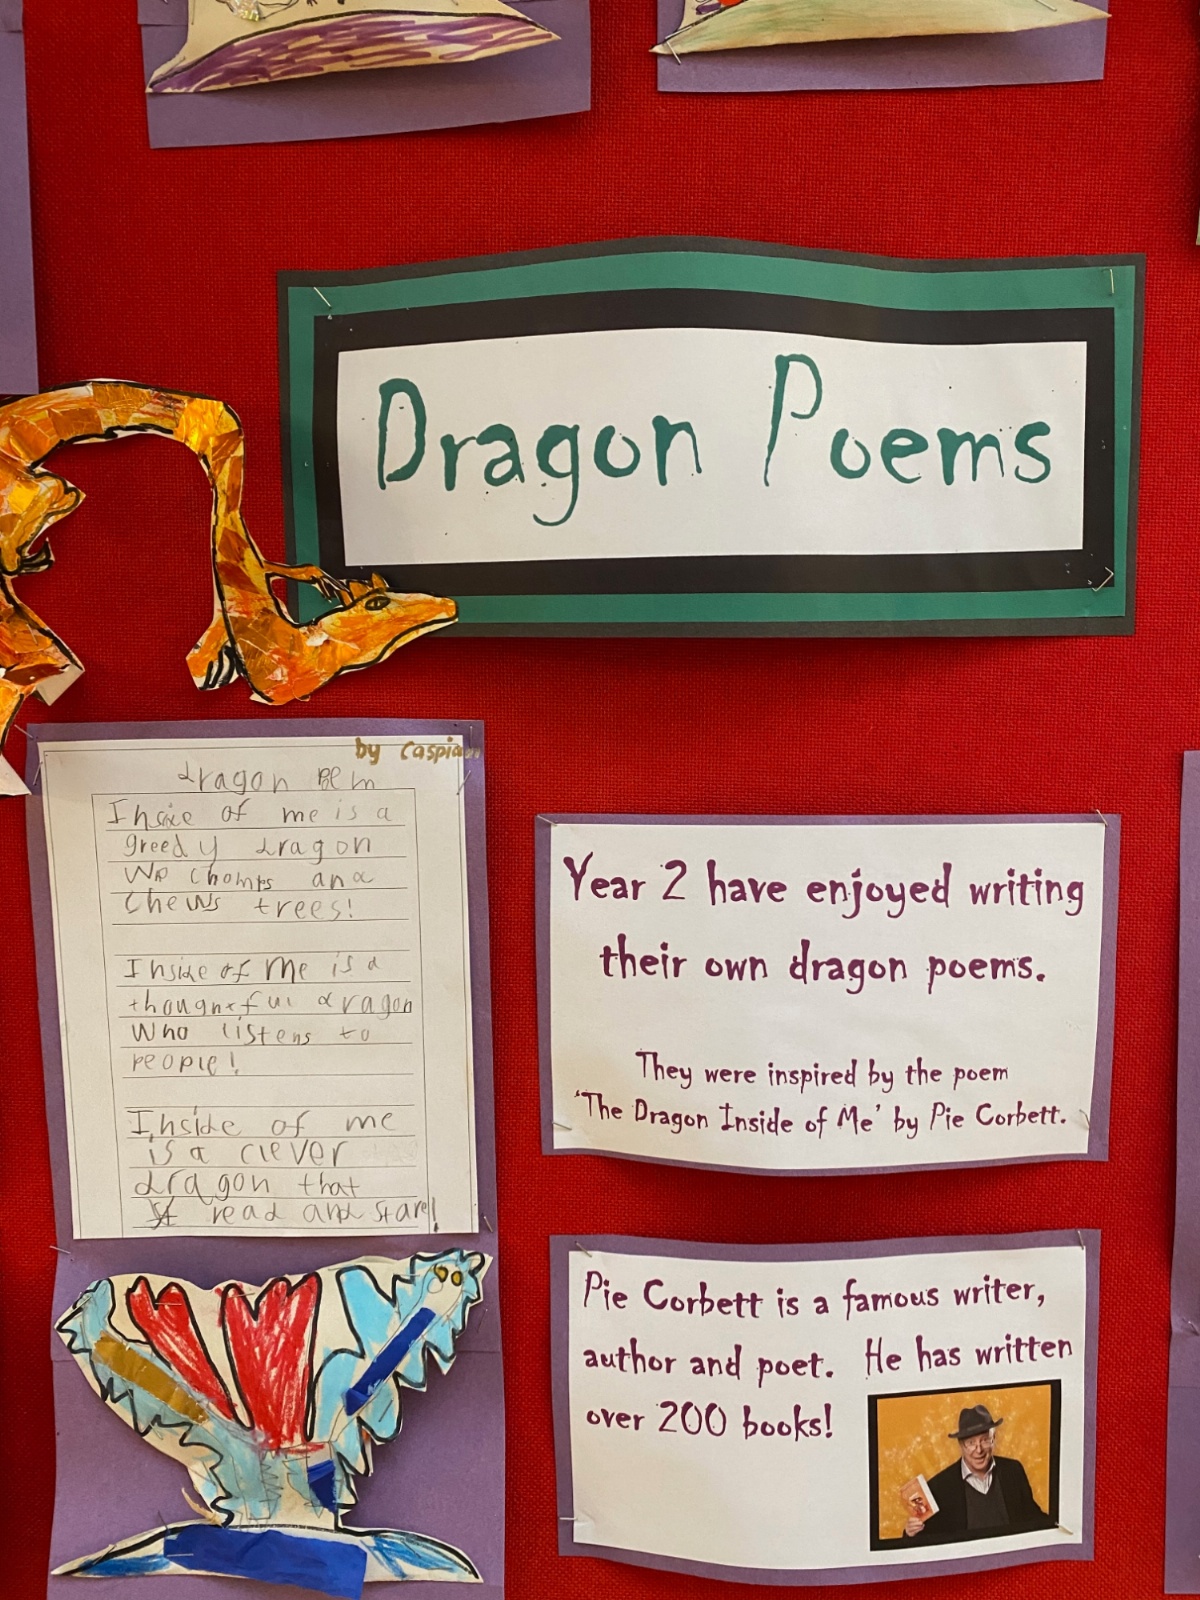 Dragon Poems
by Caspian
dragon poem
Inside of me is a
greedy dragon
Who chomps and
chews trees!
Inside of me is a
thoughtful dragon
Who listens to
people!
Inside of me
is a clever
dragon that
read and stare!
Year 2 have enjoyed writing
their own dragon poems.
They were inspired by the poem
'The Dragon Inside of Me' by Pie Corbett.
Pie Corbett is a famous writer,
author and poet. He has written
over 200 books!